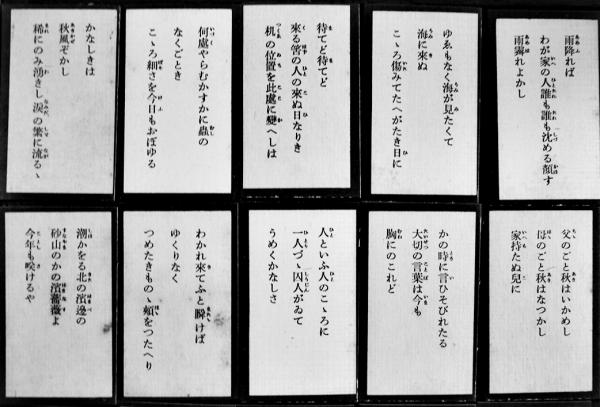 雨降れば
わが家の人誰も誰も沈める顏す
雨霽れよかし
ゆゑもなく海が見たくて
海に來ぬ
こゝろ傷みてたへがたき日に
待てど待てど
來る筈の人の來ぬ日なりき
机の位置を此處に變へしは
何處やらむかすかに蟲の
なくごとき
こゝろ細さを今日もおぼゆる
かなしきは
秋風ぞかし
稀にのみ湧きし涙の繁に流るゝ
父のごと秋はいかめし
母のごと秋はなつかし
家持たぬ兒に
かの時に言ひそびれたる
大切の言葉は今も
胸にのこれど
人といふ人のこゝろに
一人づゝ囚人がゐて
うめくかなしさ
わかれ來てふと瞬けば
ゆくりなく
つめたきものゝ頰をつたへり
潮かをる北の濱邊の
砂山のかの濱薔薇よ
今年も咲けるや